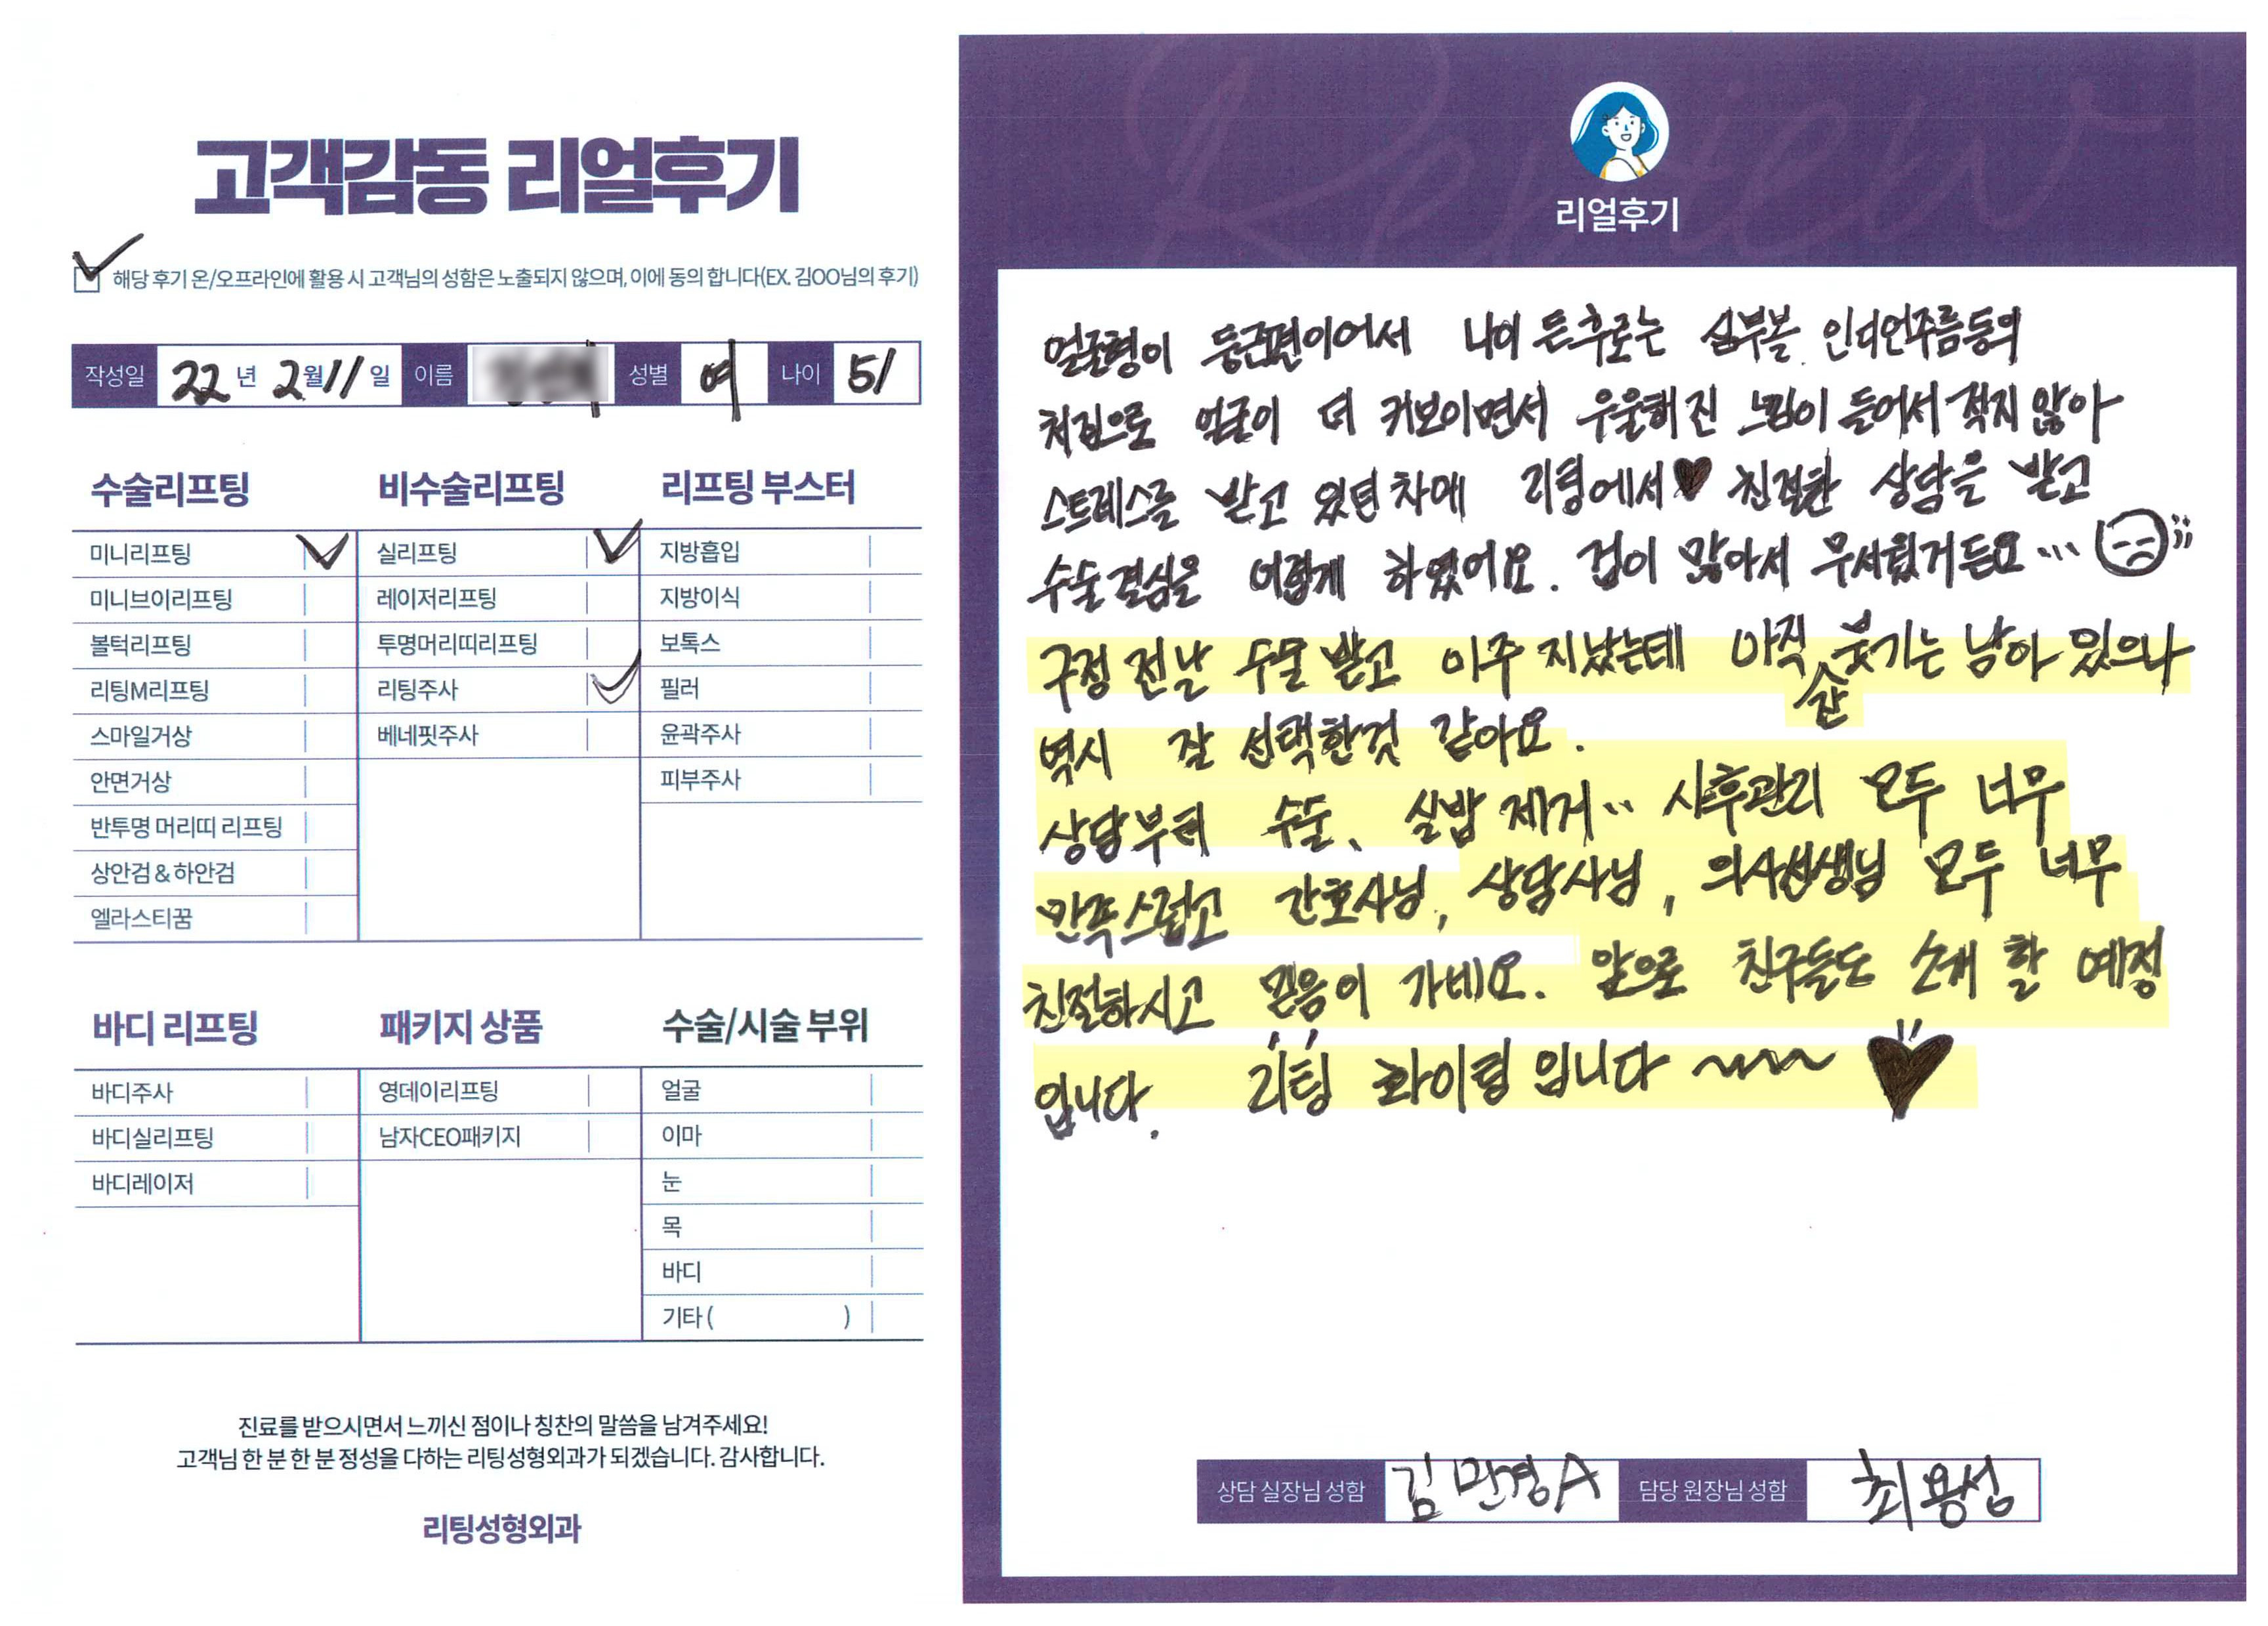 고객감동 리얼후기
해당 후기 온/오프라인에 활용 시 고객님의 성함은 노출되지 않으며, 이에 동의 합니다(EX. 김OO님의 후기)
작성일 22년 2월 11일 이름 성별 여 나이 51
수술리프팅 비수술리프팅 리프팅 부스터
미니리프팅 실리프팅 지방흡입
미니브이리프팅 레이저리프팅 지방이식
볼턱리프팅 투명머리띠리프팅 보톡스
리팅M리프팅 리팅주사 필러
스마일거상 베네핏주사 윤곽주사
안면거상 피부주사
반투명 머리띠 리프팅
상안검 & 하안검
엘라스티꿈
바디 리프팅 패키지 상품 수술/시술 부위
바디주사 영데이리프팅 얼굴
바디실리프팅 남자CEO패키지 이마
바디레이저 눈
목
바디
기타 ( )
진료를 받으시면서 느끼신 점이나 칭찬의 말씀을 남겨주세요!
고객님 한 분 한 분 정성을 다하는 리팅성형외과가 되겠습니다. 감사합니다.
리팅성형외과
Review
리얼후기
얼굴형이 둥근편이어서 나이 든 후로는 심부볼. 인디언주름등의
처짐으로 얼굴이 더 커보이면서 우울해진 느낌이 들어서 적지 않아
스트레스를 받고 있던 차에 리팅에서♥ 친절한 상담을 받고
수술결심을 어렵게 하였어요. 겁이 많아서 무서웠거든요...
구정 전날 수술 받고 이주 지났는데 아직 붓기는 남아 있으나
역시 잘 선택한것 같아요.
상담부터 수술, 실밥 제거.. 사후관리 모두 너무
만족스럽고 간호사님, 상담사님, 의사선생님 모두 너무
친절하시고 믿음이 가네요. 앞으로 친구들도 소개 할 예정
입니다. 리팅 화이팅 입니다 ~~~ ♥
상담 실장님 성함 김민경A 담당 원장님 성함 최용성